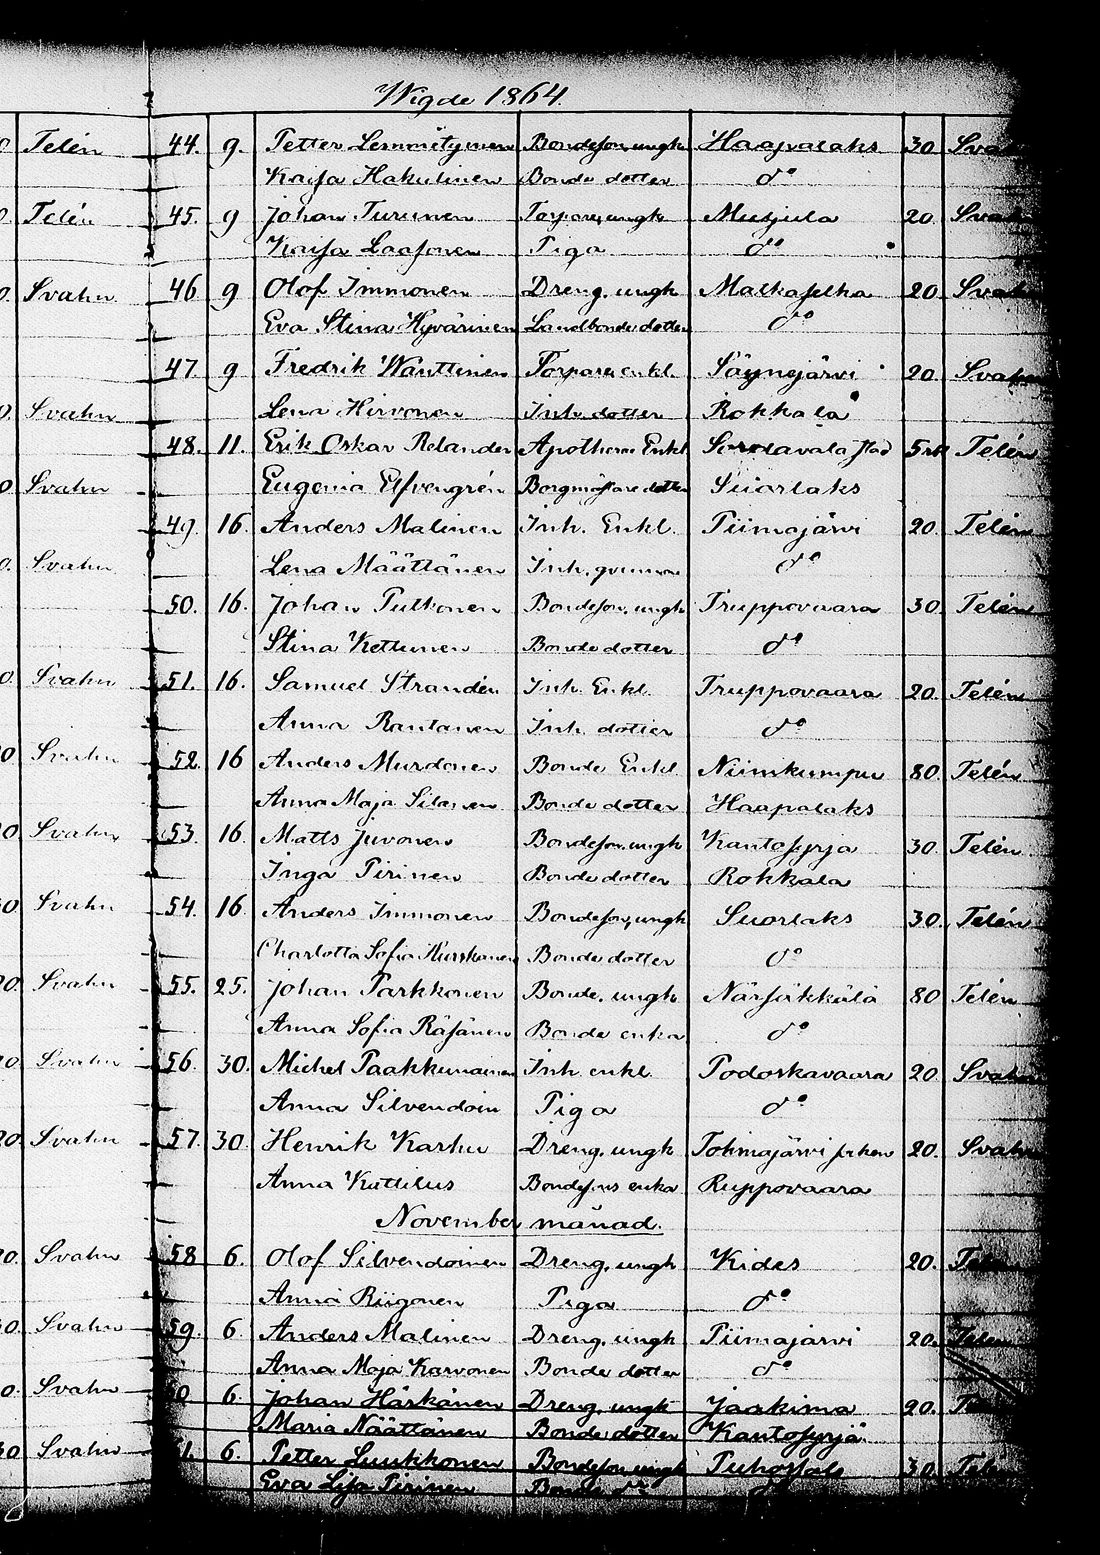 Wigde 1864.
Telén 44. 9. Petter Lemmetyinen Bondeson, ungk Haapalaks 30 Svahn
Kaisa Hakulinen Bonde dotter do
Telén 45. 9 Johan Turunen Torpare, ungk Musjula 20. Svahn
Kaisa Laasonen Piga do
Svahn 46 9 Olof Immonen Dreng, ungk Matkaselka 20 Svahn
Eva Stina Hyvärinen Landbonde dotter do
47. 9 Fredrik Wänttinen Torpare enkl. Säynejärvi 20. Svahn
Svahn Lena Hirvonen Inh. dotter Rokkala
48. 11. Erik Oskar Relander Apothecare Enkl Sordavala stad 5 rub Telén
Svahn Eugenia Elfvengrén Borgmästare dotter Suorlaks
49. 16. Anders Malinen Inh. Enkl. Piimäjärvi 20. Telén
Svahn Lena Määttänen Inh. qvinna do
50. 16. Johan Pulkonen Bondeson, ungk Truppovaara 30. Telén
Stina Kettunen Bonde dotter do
Svahn 51. 16. Samuel Strandén Inh. Enkl. Truppovaara 20. Telén
Anna Rantanen Inh. dotter do
Svahn 52. 16 Anders Murdonen Bonde Enkl. Niinikumpu 80. Telén
Anna Maja Silanen Bonde dotter Haapalaks
Svahn 53. 16 Matts Juvonen Bondeson, ungk Kantosyrja 30. Telén
Inga Pirinen Bonde dotter Rokkala
Svahn 54. 16 Anders Immonen Bondeson, ungk Suorlaks 30. Telén
Charlotta Sofia Kurkkonen Bonde dotter do
Svahn 55. 25. Johan Parkkonen Bonde, ungk Närsäkkälä 80 Telén
Anna Sofia Räsänen Bonde enka do
Svahn 56 30. Michel Paakkunainen Inh. enkl. Podoskavaara 20 Svahn
Anna Silvendoin Piga do
Svahn 57. 30. Henrik Karhu Dreng, ungk Tohmajärvi srken 20. Svahn
Anna Kuttilus Bondesons enka Ruppovaara
November månad.
Svahn 58 6. Olof Silvendoinen Dreng, ungk Kides 20. Telén
Anna Riigonen Piga do
Svahn 59. 6. Anders Malinen Dreng, ungk Piimäjärvi 20. Telén
Anna Maja Karvonen Bonde dotter do
Svahn 60 6. Johan Härkänen Dreng, ungk Jaakima 20.
Maria Näättänen Bonde dotter Kantosyrjä
Svahn 61. 6. Petter Luukkonen Bondeson, ungk Puhossalo 30. Telén
Eva Lisa Pirinen Bonde do